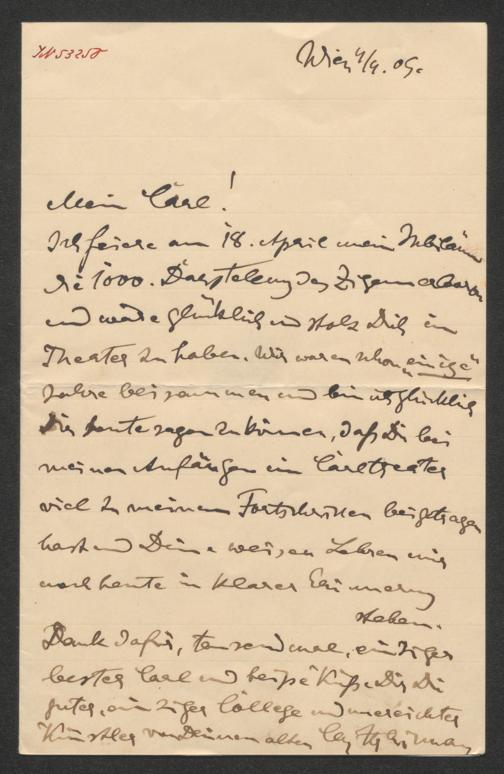 IN 53258
Wien 4/4. 09.
Mein Carl!
Ich feiere am 18. April mein Jubiläum
die 1000. Darstellung des Zigeunerbaron
und wäre glücklich und stolz Dich im
Theater zu haben. Wir waren schon "einige"
Jahre beisammen und bin ich glücklich
Dir heute sagen zu können, daß Du bei
meinen Anfängen im Carltheater
viel zu meinem Fortschreiten beigetragen
hast und Deine weisen Lehren mir
noch heute in klarer Erinnerung
stehen.
Dank dafür, tausendmal, einziger
bester Carl und heiße Küße Dir Du
guter, einziger College und unerreichter
Künstler von Deinem alten